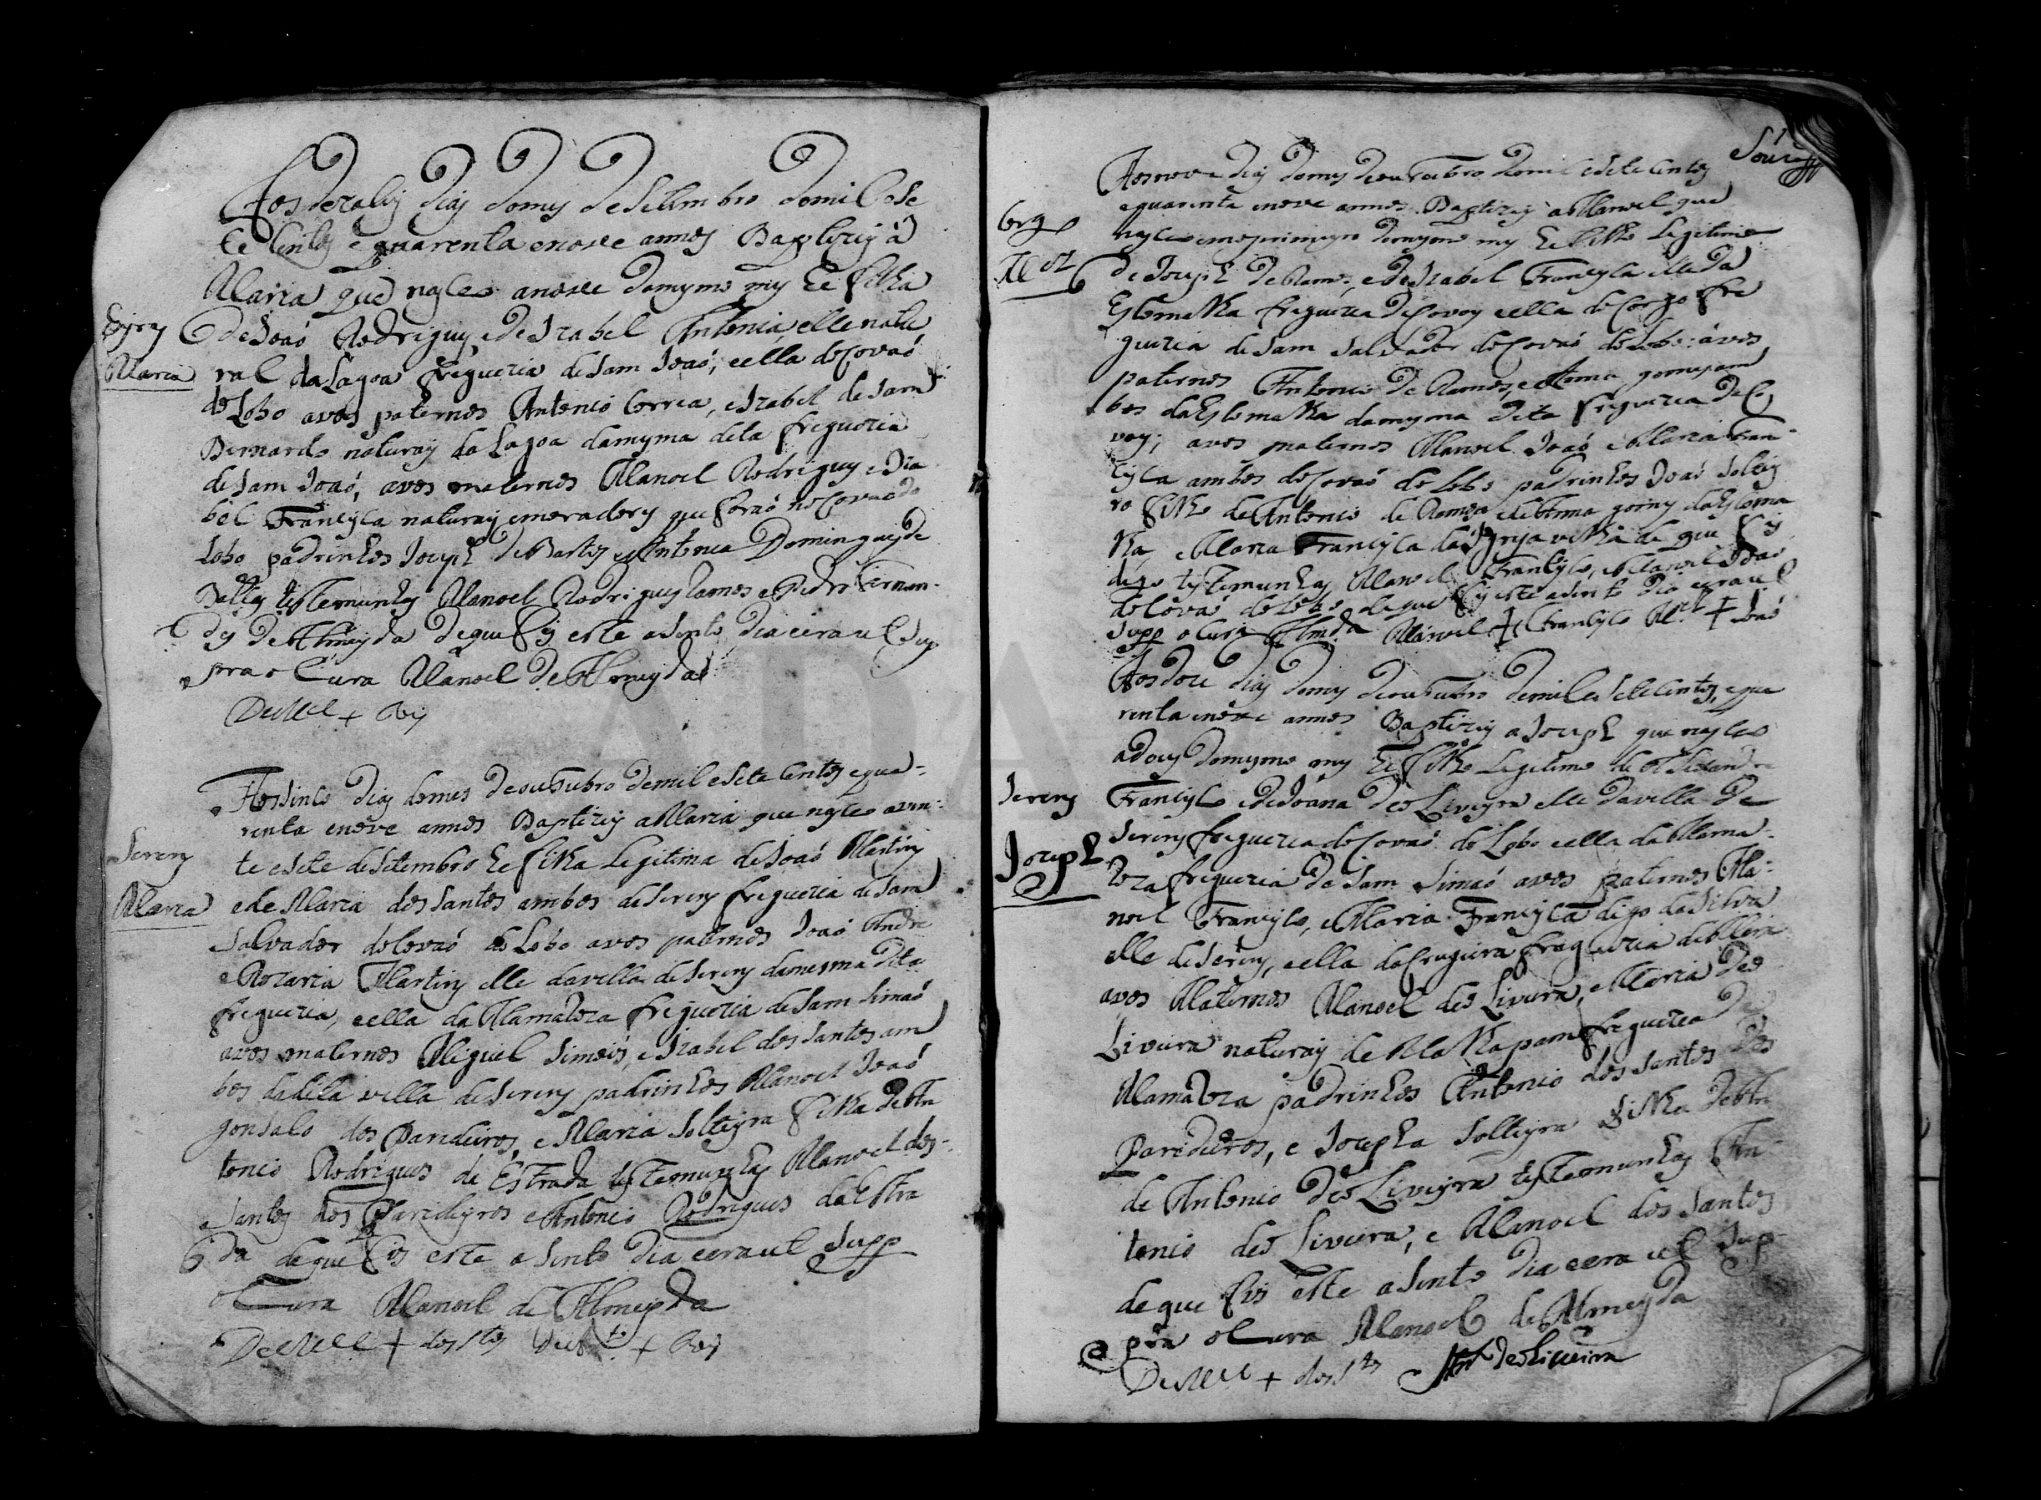 Aos dezaseis dias do mes de Setimbro de mil e se
te centos e quarenta e nove annos Baptizey á
Maria que nasceo a nove do mesmo mes he filha
Maria
de Joaó Rodrigues, e de Izabel Antonia elle natu
ral da Lagoa freguezia de Sam Joaó, e ella do Covaó
do Lobo avos paternos Antonio Correa, e Izabel de Sam
Bernardo naturais da Lagoa da mesma dita freguezia
de Sam Joaó, avos maternos Manoel Rodrigues e Iza
bel Francisca naturais e moradores que foraó no Covaó do
Lobo padrinhos Joseph de Bastos e Antonia Domingues de
testemunhas Manoel Rodrigues Ramos e Pedro Fernan
des de Almeyda de que fis este asento dia e era ut Sup
pra o Cura Manoel de Almeyda
De Mel + Roiz
Aos sinco dias do mes de outubro de mil e sete centos e qua-
renta e nove annos Baptizey a Maria que nasceo a vin-
te e sete de Setembro he filha legitima de Joaó Martins
Serem
Maria
e de Maria dos Santos ambos de Serem freguezia de Sam
Salvador do Covaó do Lobo avos paternos Joaó Andre
e Rozaria Martins elle da villa de Serem da mesma dita
freguezia, e ella da Mamaroza freguezia de Sam Simaó
avos maternos Miguel Simois, e Izabel dos Santos am
bos da dita villa de Serem padrinhos Manoel Joaó
gonsalo dos Paredeiros, e Maria Solteyra filha de An
tonio Rodrigues da Estrada testemunhas Manoel dos
Santos dos Paredeyros e Antonio Rodrigues da Estra
da de que fis este asento dia e era ut Supp
o Cura Manoel de Almeyda
De Mel + dos Stos De Anto + Roiz
Aos nove dias do mes de outubro de mil e sete centos
e quarenta e nove annos Baptizey a Manoel que
nasceo em o primeyro do mesmo mes he filho legitimo
Mel
de Joseph de Ramos, e de Izabel Francisca elle da
freguezia de e ella do Corgo fre
guezia de Sam Salvador do Covaó do Lobo: avos
paternos Antonio de Ramos, e Anna gomes am
bos da da mesma dita freguezia de
avos maternos Manoel Joaó e Maria Fran
cisca ambos do Covaó do Lobo padrinhos Joaó Soltey
ro filho de Antonio de Ramos e de Anna gomes da
e Maria Francisca da de que fis
digo testemunhas Manoel Francisco, e Manoel Joaó
do Covaó do Lobo de que fis este asento dia e era ut
Supp o Cura Almda Manoel + Francisco Mel + Joaó
Aos doze dias do mes de outubro de mil e sete centos, e qua
renta e nove annos Baptizey a Joseph que nasceo
a dous do mesmo mes he filho legitimo de Alexandre
Serem
Joseph
Francisco e de Joana de Oliveyra elle da villa de
Serem freguezia do Covaó do Lobo e ella da Mama-
roza freguezia de Sam Simaó avos paternos Ma-
noel Francisco, e Maria Francisca digo da Silva
elle de Serem, e ella da freguezia de
avos Maternos Manoel de Oliveira, e Maria de O
Liveira naturais de freguezia da
Mamaroza padrinhos Antonio dos Santos dos
Paredeiros, e Josepha Solteyra filha de An
de Antonio de Oliveyra testemunhas An
tonio de Oliveira, e Manoel dos Santos
de que fis este asento dia e era ut Sup-
pra o Cura Manoel de Almeyda
De Mel + dos Stos Anto de Oliveira